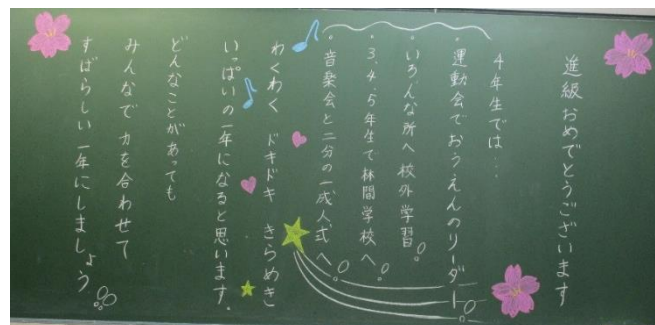 進級おめでとうございます
4年生では…
・運動会でおうえんのリーダー
・いろんな所へ校外学習。
・3.4.5年生で林間学校へ。
・音楽会と二分の一成人式へ。
わくわく ドキドキ きらめき
いっぱいの一年になると思います.
どんなことがあっても
みんなで力を合わせて
すばらしい一年にしましょう。